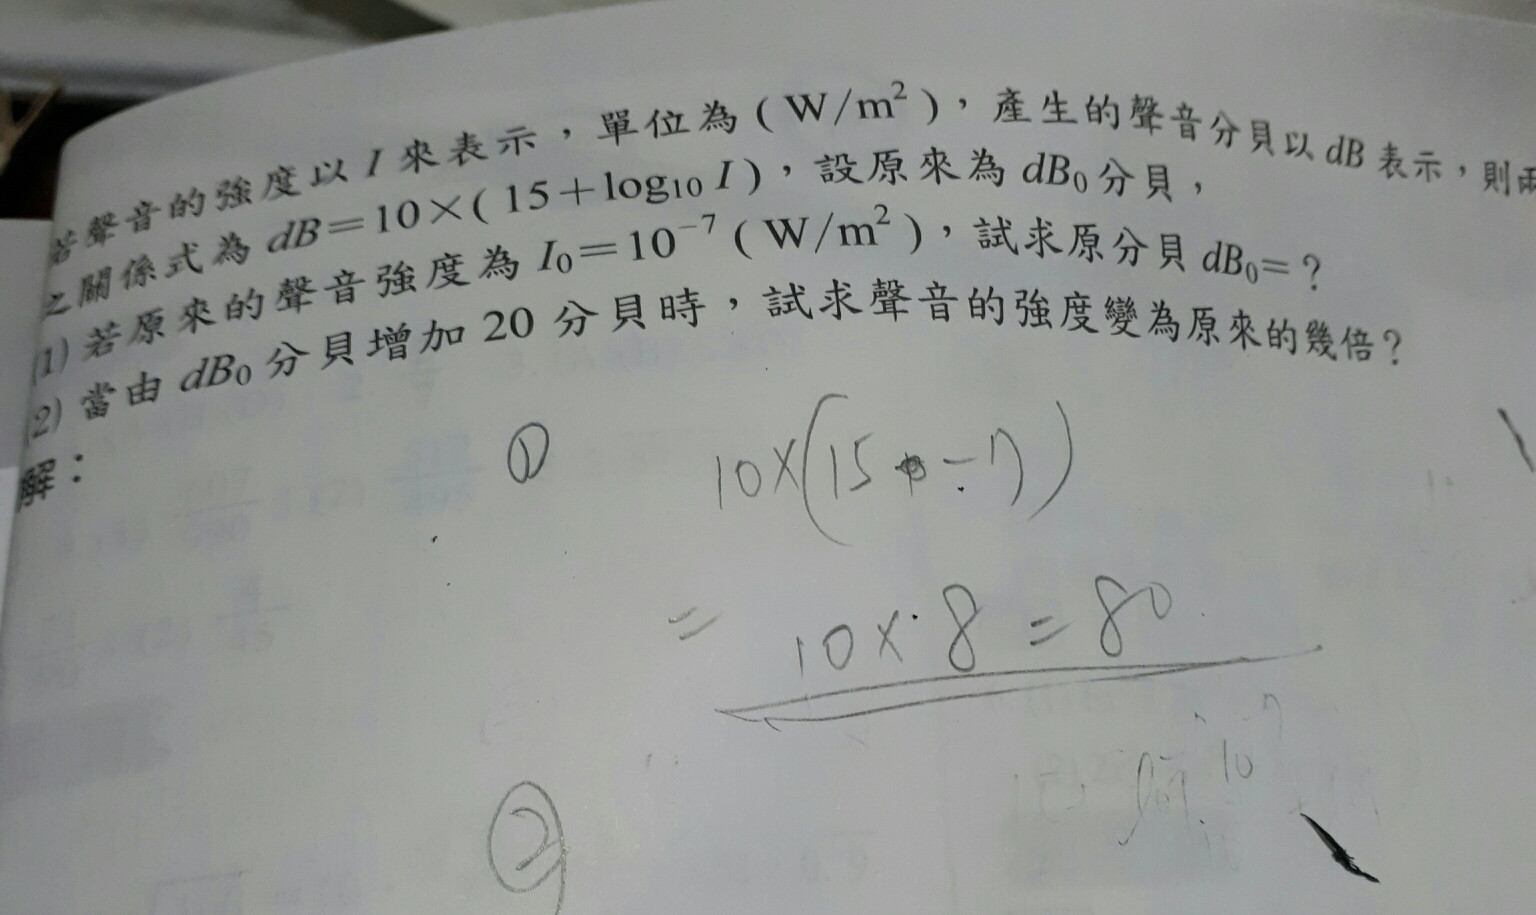 若聲音的強度以 I 來表示，單位為 ( W/m² )，產生的聲音分貝以 dB 表示，則兩
之關係式為 dB=10×( 15+log₁₀ I )，設原來為 dB₀ 分貝，
(1) 若原來的聲音強度為 I₀=10⁻⁷ ( W/m² )，試求原分貝 dB₀=？
(2) 當由 dB₀ 分貝增加 20 分貝時，試求聲音的強度變為原來的幾倍？
解：
① 10×(15 + -7)
= 10×8 = 80
②